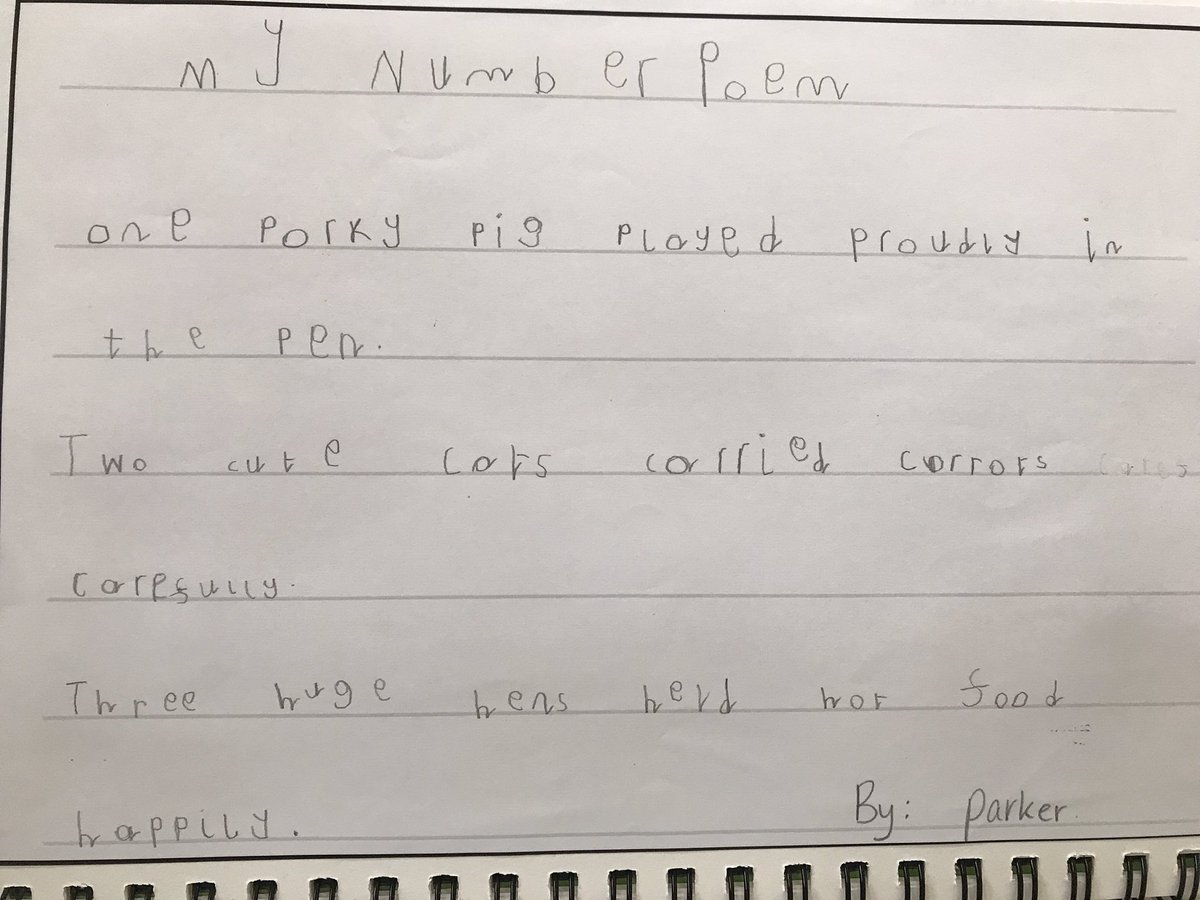 My Number Poem
one porky pig played proudly in
the pen.
Two cute cats carried carrots
carefully.
Three huge hens held hot food
happily.
By: Parker